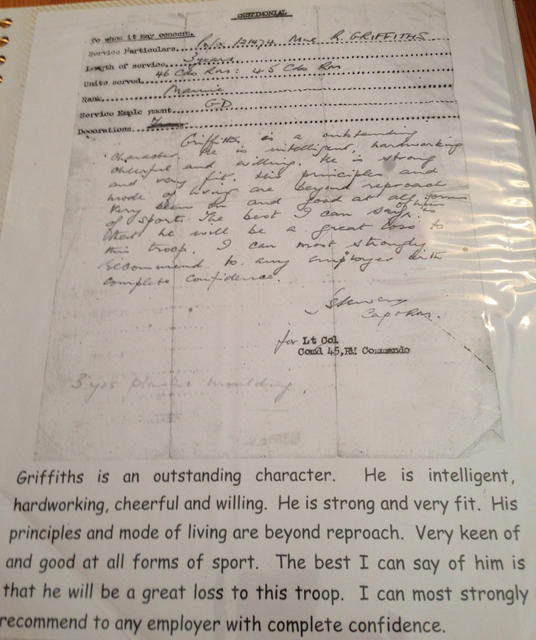 TESTIMONIAL
To whom it May concern.
Service Particulars. Mne R. GRIFFITHS
Length of service. 3 years
Units served. 46 Cdo Rm: 45 Cdo Rm
Rank Marine
Service Employment. G.D
Decorations
Griffiths is a outstanding
character. He is intelligent, hardworking
cheerful and willing. He is strong
and very fit. His principles and
mode of living are beyond reproach
Very keen on and good at all forms
of sport. The best I can say of him is
that he will be a great loss to
this troop. I can most strongly
recommend to any employer with
complete confidence.
Capt Rm.
for Lt Col
Comd 45,RM Commando
3 yrs plaster moulding.
Griffiths is an outstanding character. He is intelligent,
hardworking, cheerful and willing. He is strong and very fit. His
principles and mode of living are beyond reproach. Very keen of
and good at all forms of sport. The best I can say of him is
that he will be a great loss to this troop. I can most strongly
recommend to any employer with complete confidence.